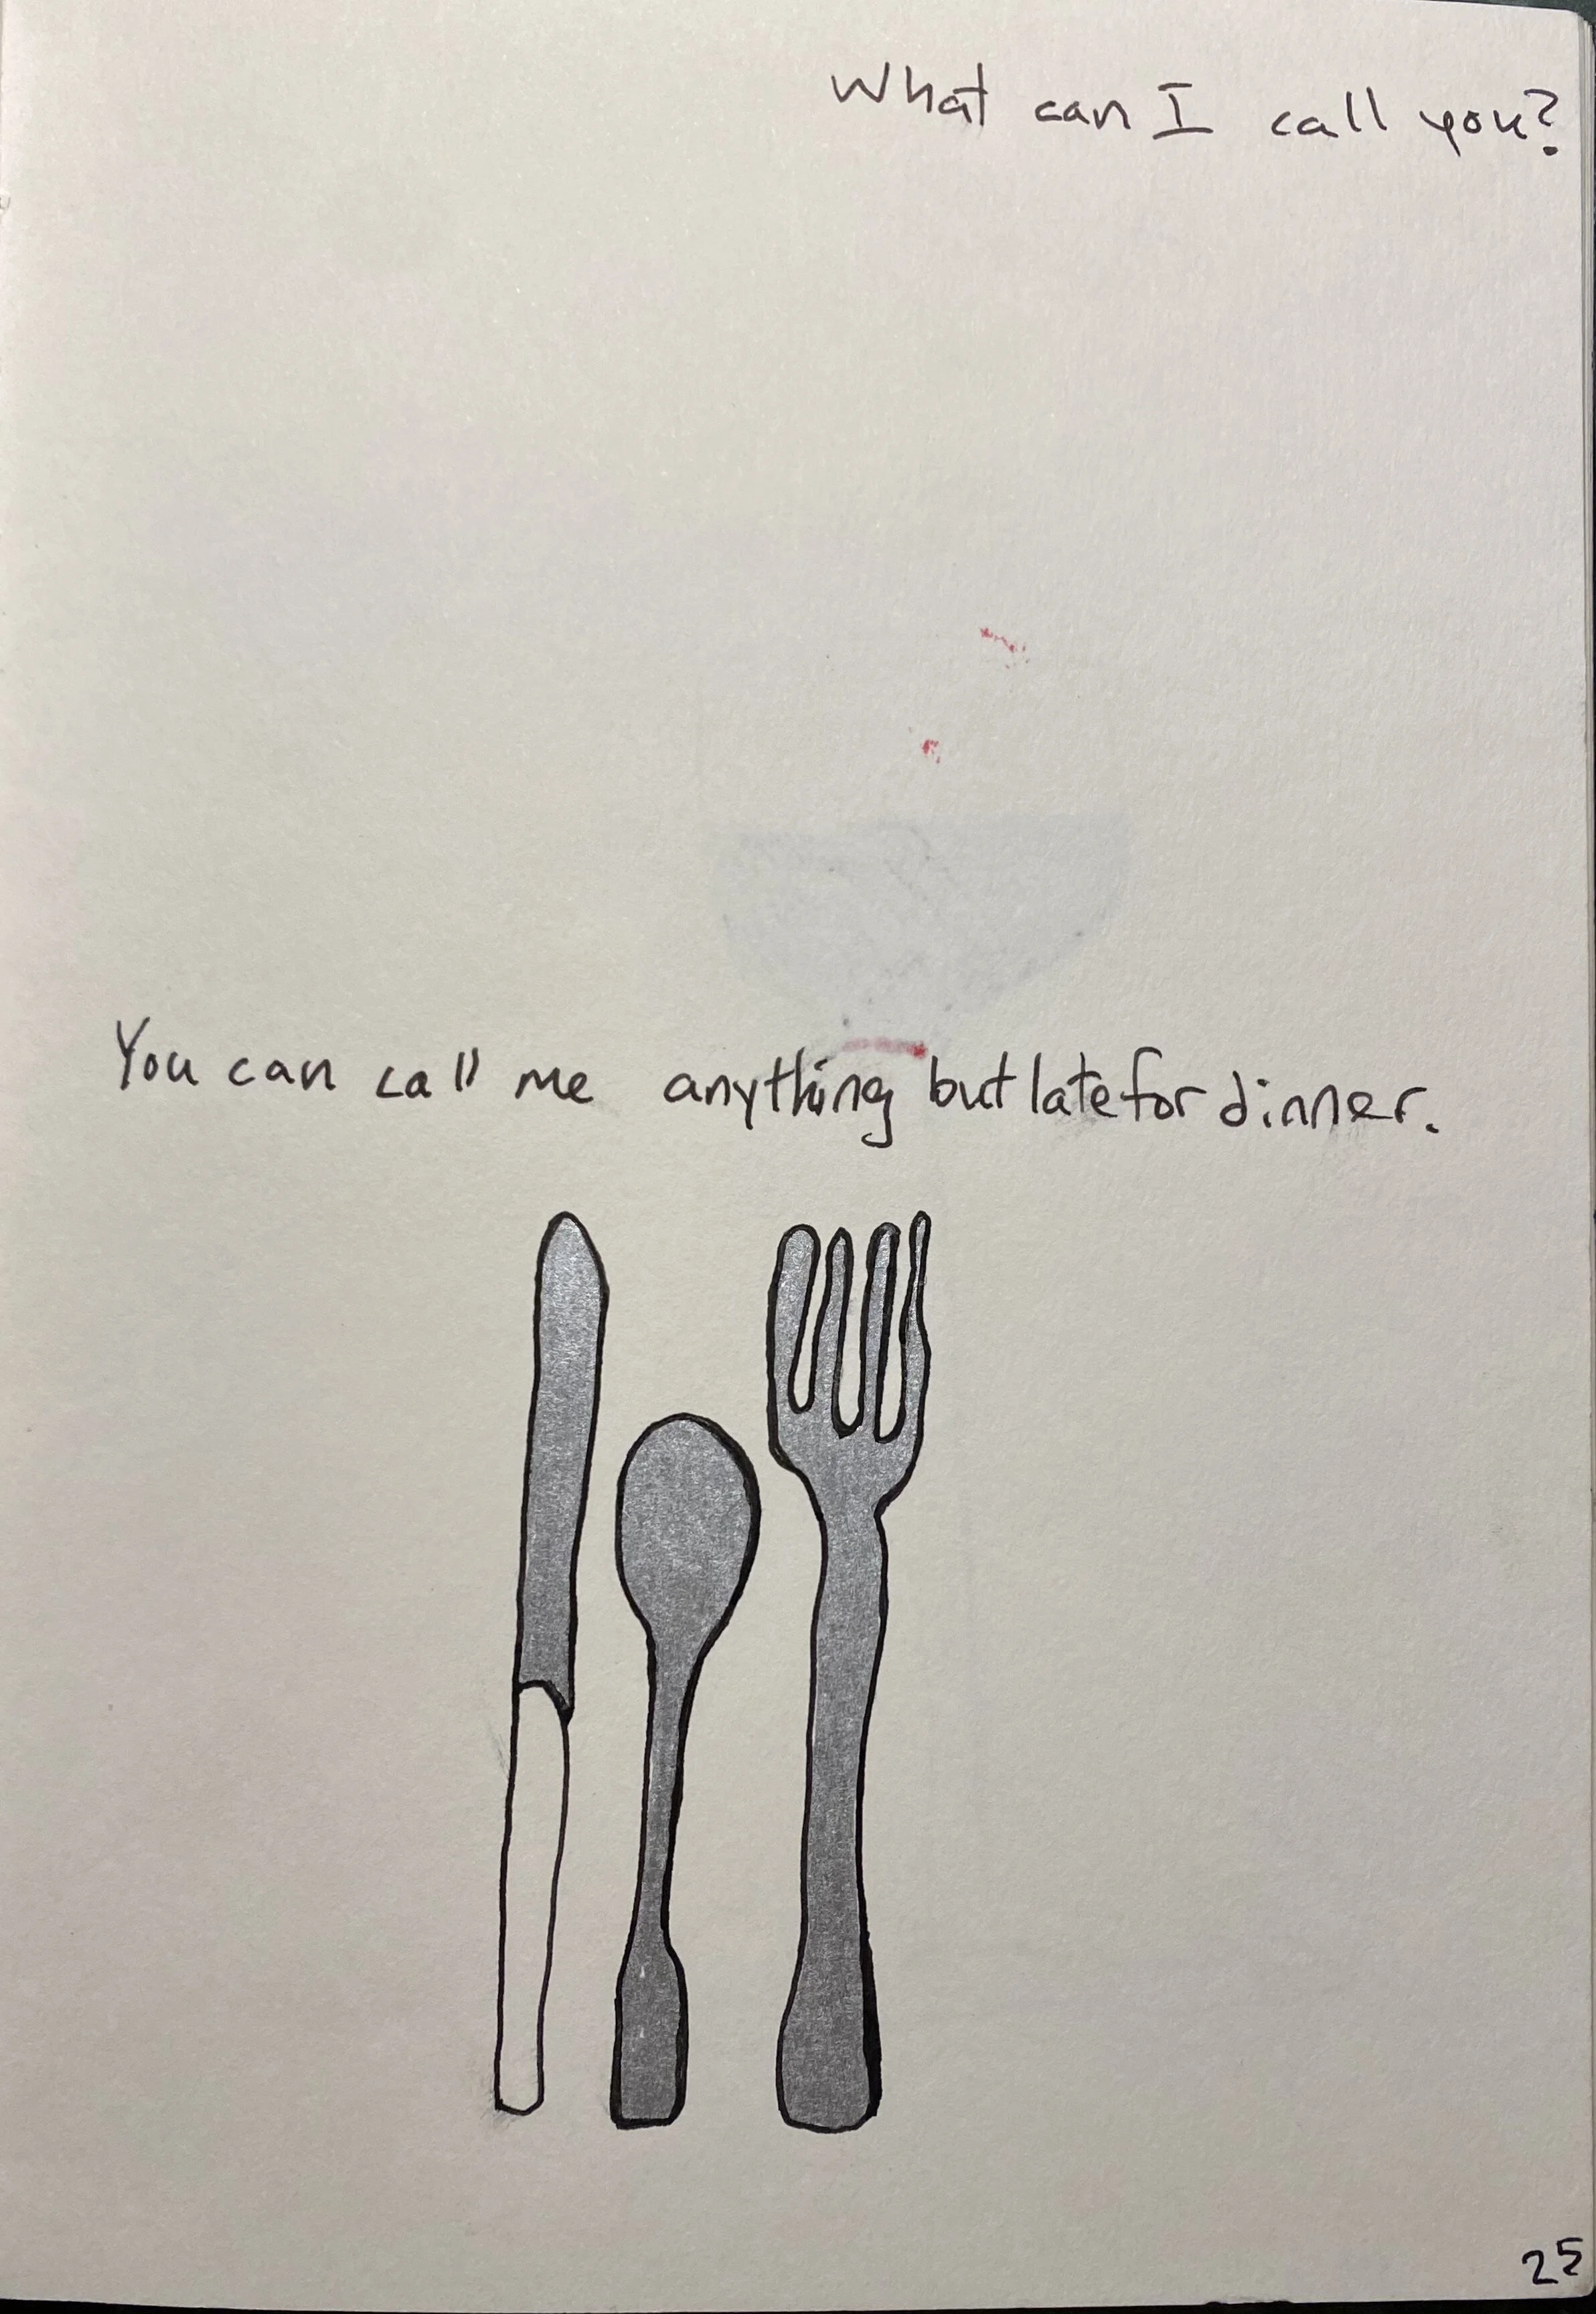 What can I call you?
You can call me anything but late for dinner.
25